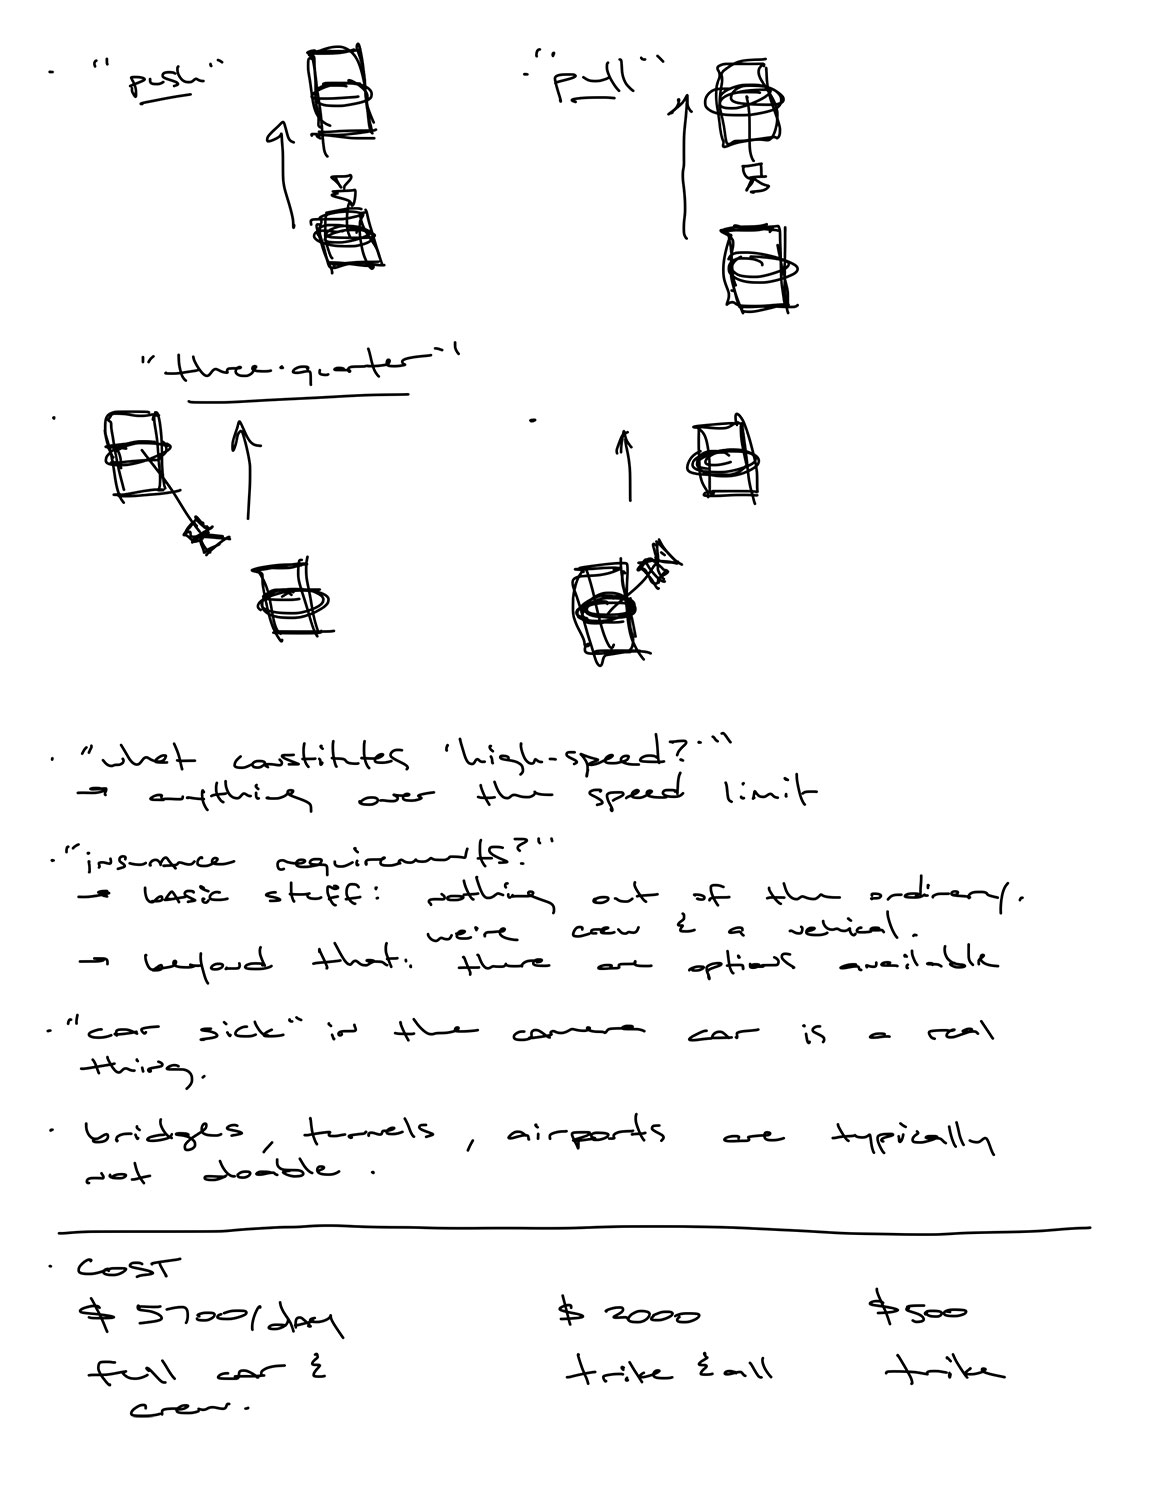 · "push"
· "pull"
"three-quarter"
· "what constitutes 'high-speed?'"
→ anything over the speed limit
· "insurance requirements?"
→ basic stuff: nothing out of the ordinary.
we're crew & a vehical.
→ beyond that: there are options available
· "car sick" in the camera car is a real
thing.
· bridges, tunnels, airports are typically
not doable.
· COST
$5700/day $2000 $500
full car & trike & all trike
crew.